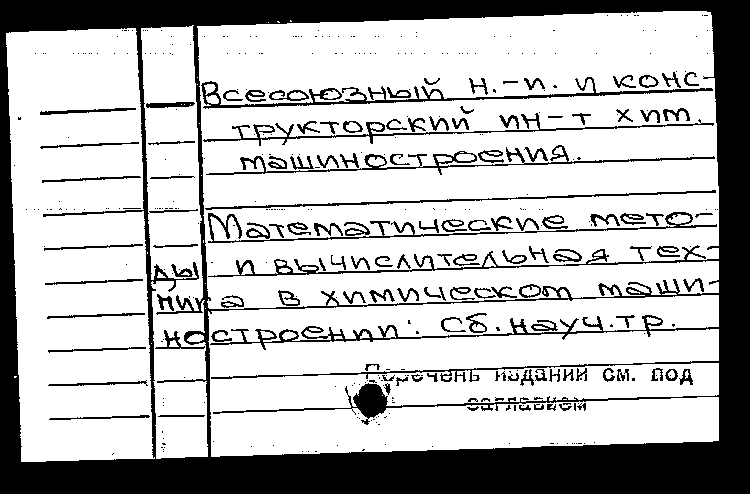 Всесоюзный н.-и. и конс-
трукторский ин-т хим.
машиностроения.
Математические мето-
ды и вычислительная тех-
ника в химическом маши-
ностроении: Сб. науч. тр.
Перечень изданий см. под
заглавием